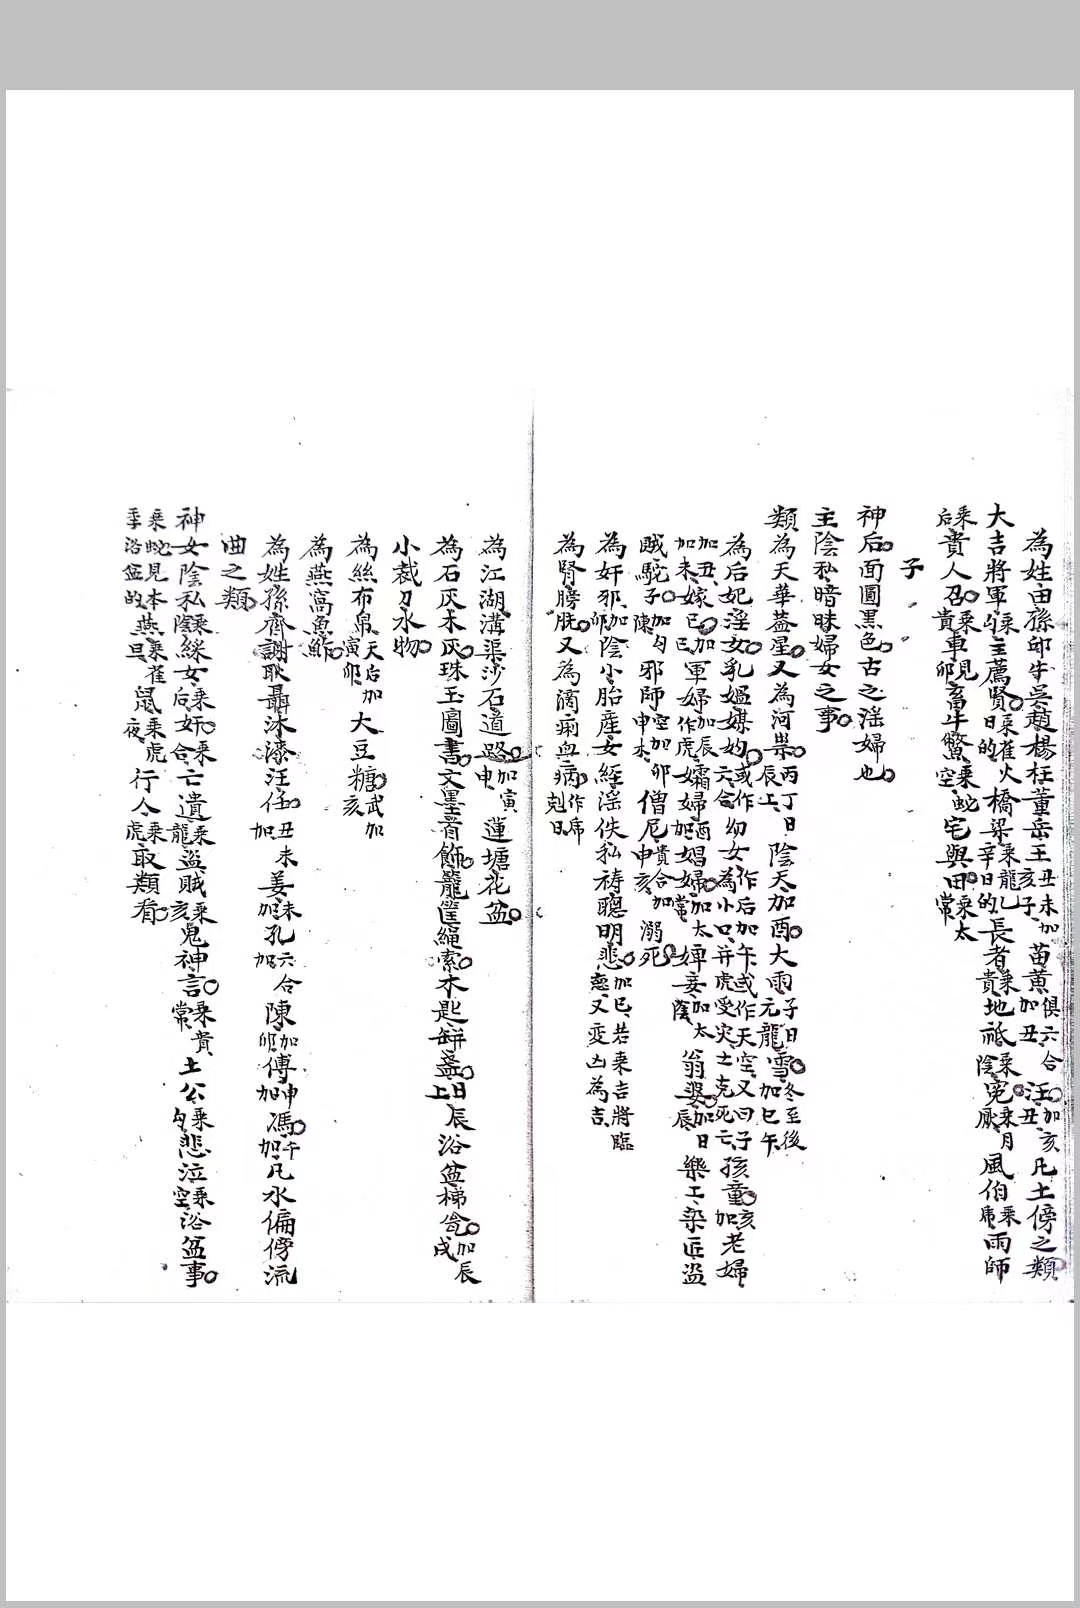 為姓由孫邱牛吳趙楊杜董岳王丑未加亥子苗黃俱六合加丑汪加亥丑凡土傍之類
大吉將軍乘勾主薦賢乘雀日的火橋梁乘龍乙辛日的長者乘貴地祗乘陰冤乘月厭風伯乘虎雨師
乘后貴人召乘貴車見卯畜牛鱉乘蛇空宅與田乘太常
子
神后面圓黑色古之滛婦也
主陰私暗昧婦女之事
類為天華蓋星又為河祟丙丁日辰上陰天加酉大雨子日元龍雪冬至後加巳午
為后妃淫女乳媼媒妁或作六合幼女作后加午或作天空又曰子為小口并虎受灾土克死亡孩童加亥老婦
加丑嫁巳加加未軍婦加辰作虎孀婦酉加娼婦加太常婢妾加太陰翁婆加日辰樂工染匠盜
賊駝子加勾陳邪師空加申本卯僧尼貴合加申亥溺死
為奸邪加卯陰小胎産女經淫佚私禱聰明悲加巳若乘吉將臨愈又变凶為吉
為腎膀胱又為滴痢血病作虎剋日
為江湖溝渠沙石道路加寅申蓮塘花盆
為石灰木灰珠玉圖書文墨首飾籠筐繩索木匙缾盞日辰上浴盆梯瓮加辰戌
小裁刀水物
為絲布帛天后加寅卯大豆糖武加亥
為燕窩魚鮓
為姓孫齊謝耿聶沐漆汪任丑未加姜未加孔六合加陳加卯傅申加馮午加凡水偏傍流
曲之類
神女陰私乘陰綵女乘后奸乘合亡遺乘龍盜賊乘亥鬼神言乘貴常土公乘勾悲泣乘空浴盆事
乘蛇見本季浴盆的燕乘雀旦鼠乘虎夜行人乘虎取類看